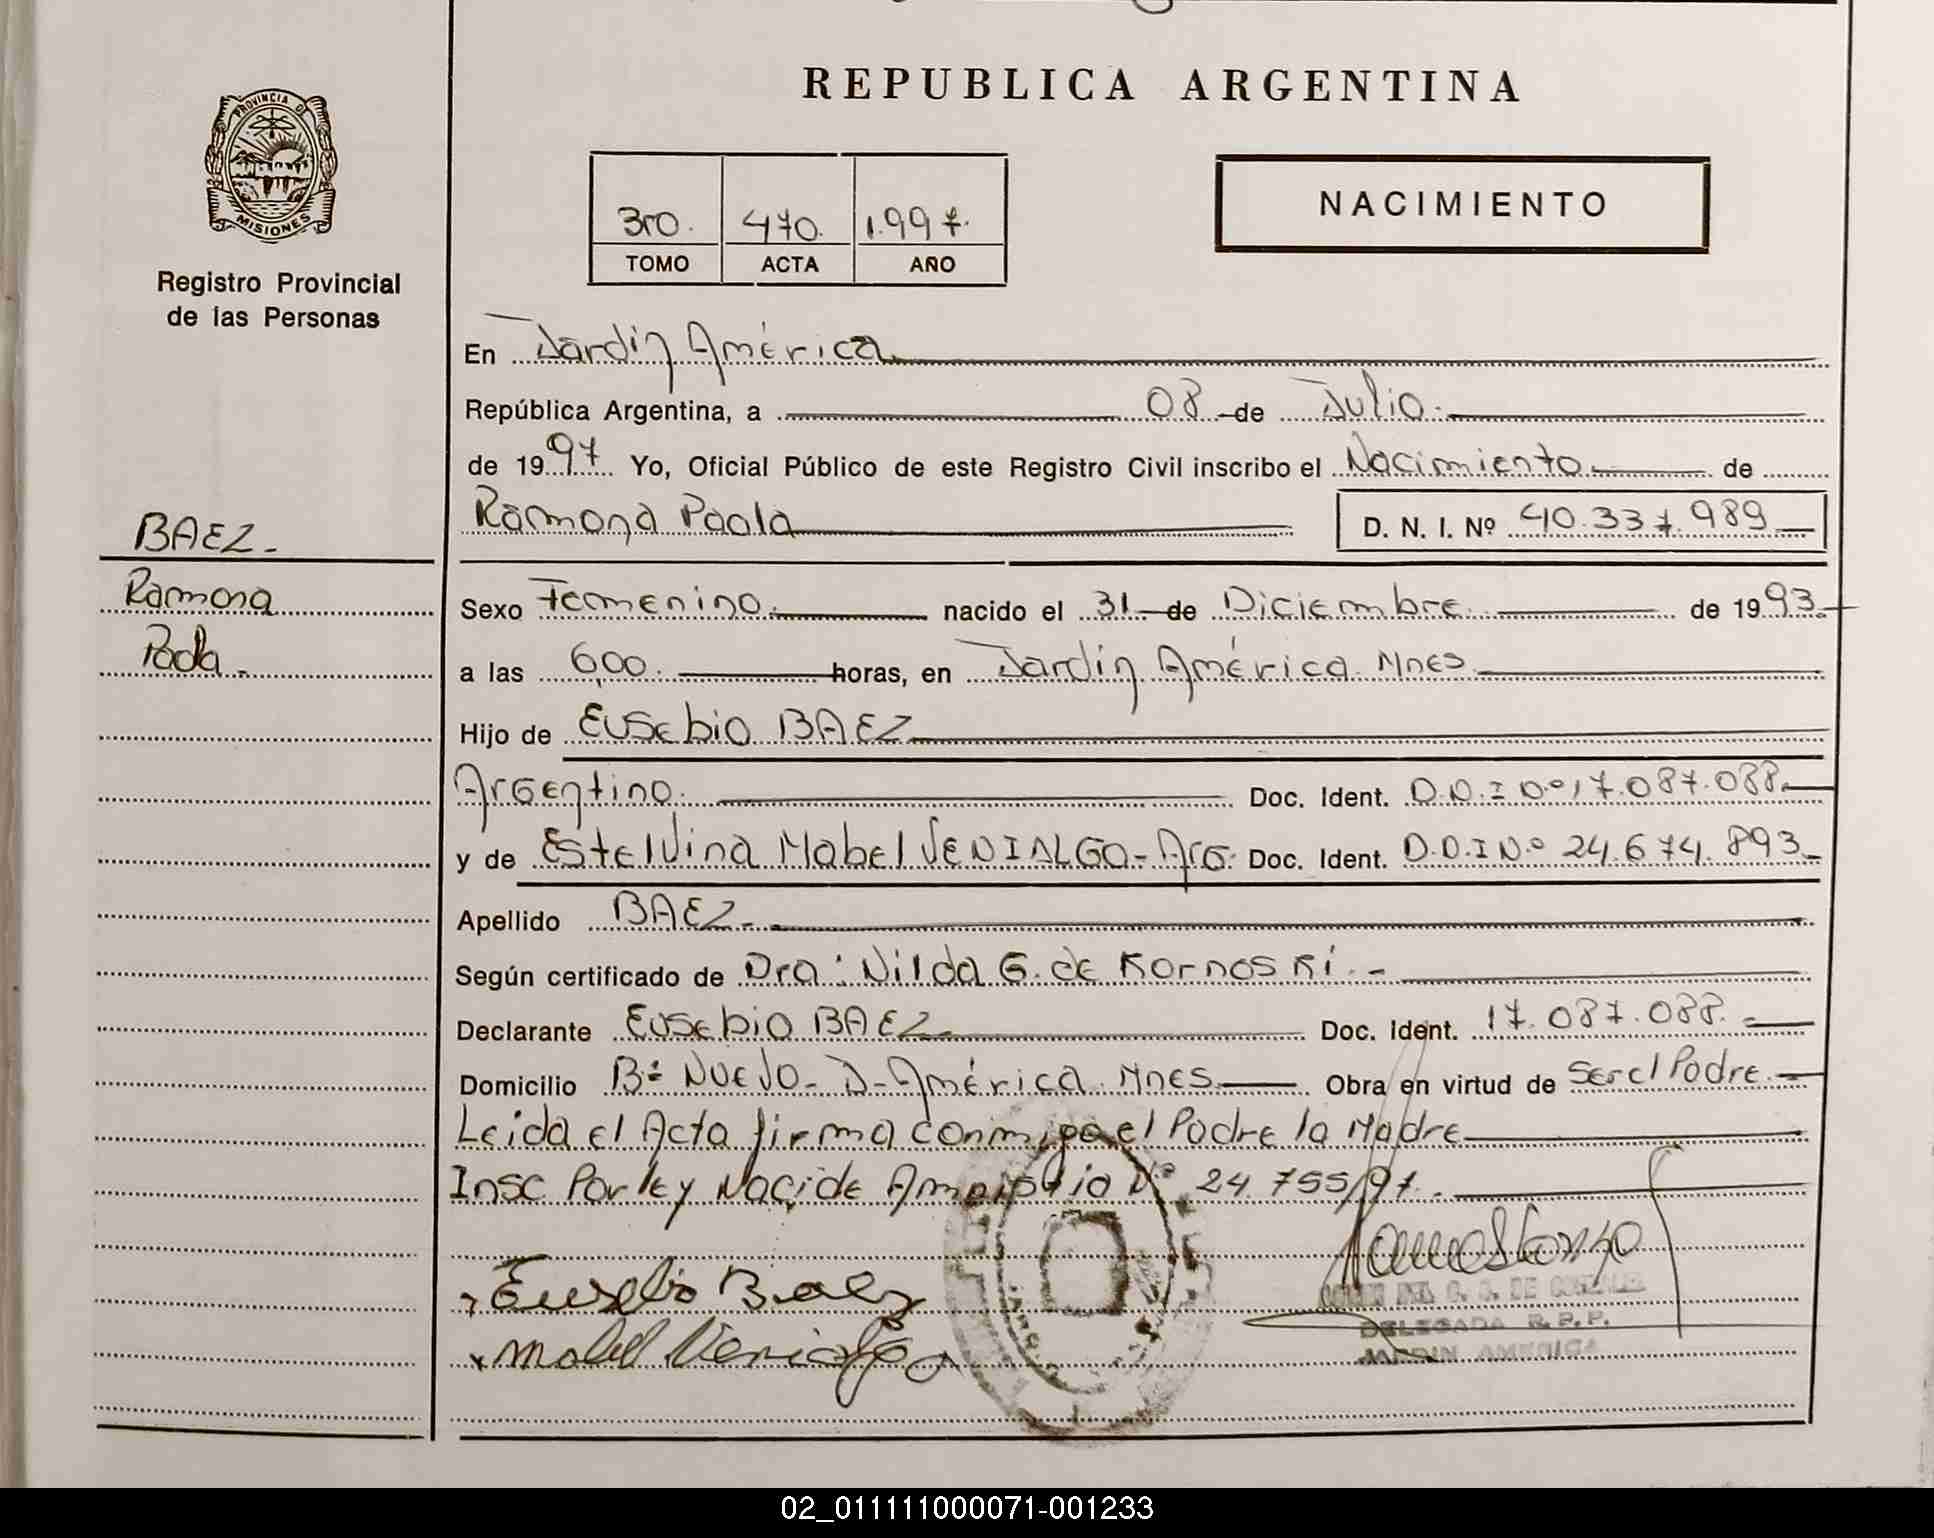 REPUBLICA ARGENTINA
PROVINCIA DE MISIONES
Registro Provincial
de las Personas
3ro. 470. 1.997.
TOMO ACTA AÑO
NACIMIENTO
En Jardín América
República Argentina, a 08 de Julio.
de 1997. Yo, Oficial Público de este Registro Civil inscribo el Nacimiento de
Ramona Paola D. N. I. Nº 40.337.989
BAEZ.
Ramona
Paola.
Sexo Femenino. nacido el 31 de Diciembre. de 1993.
a las 6,00. horas, en Jardín América. Mnes.
Hijo de Eusebio BAEZ
Argentino. Doc. Ident. D.N.I Nº 17.087.088.
y de Estelvina Mabel VENIALGO. Arg. Doc. Ident. D.N.I Nº 24.674.893.
Apellido BAEZ.
Según certificado de Dra: Nilda G. de Kornoski.
Declarante Eusebio BAEZ. Doc. Ident. 17.087.088.
Domicilio Bº Nuevo. J. América. Mnes. Obra en virtud de ser el Padre.
Leida el Acta firma conmigo el Padre la Madre
Insc Por ley Nac. de Amnistia Nº 24.755/97.
Eusebio Baez
Mabel Venialgo
DELEGADA R. P. P.
JARDIN AMERICA
02_011111000071-001233